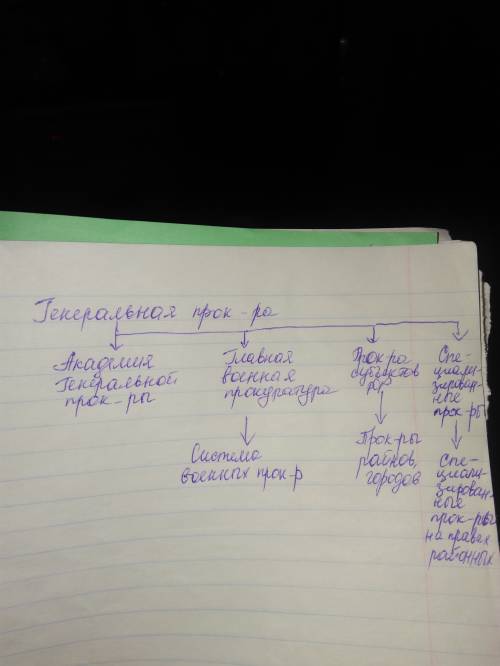 Генеральная прок-ра
Академия
Генеральной
прок-ры
Главная
военная
прокуратура
Система
военных прок-р
Прок-ра
субъектов
РФ
Прок-ры
районов,
городов
Спе-
циали-
зирован-
ные
прок-ры
Спе-
циали-
зирован-
ные
прок-ры
на правах
районных